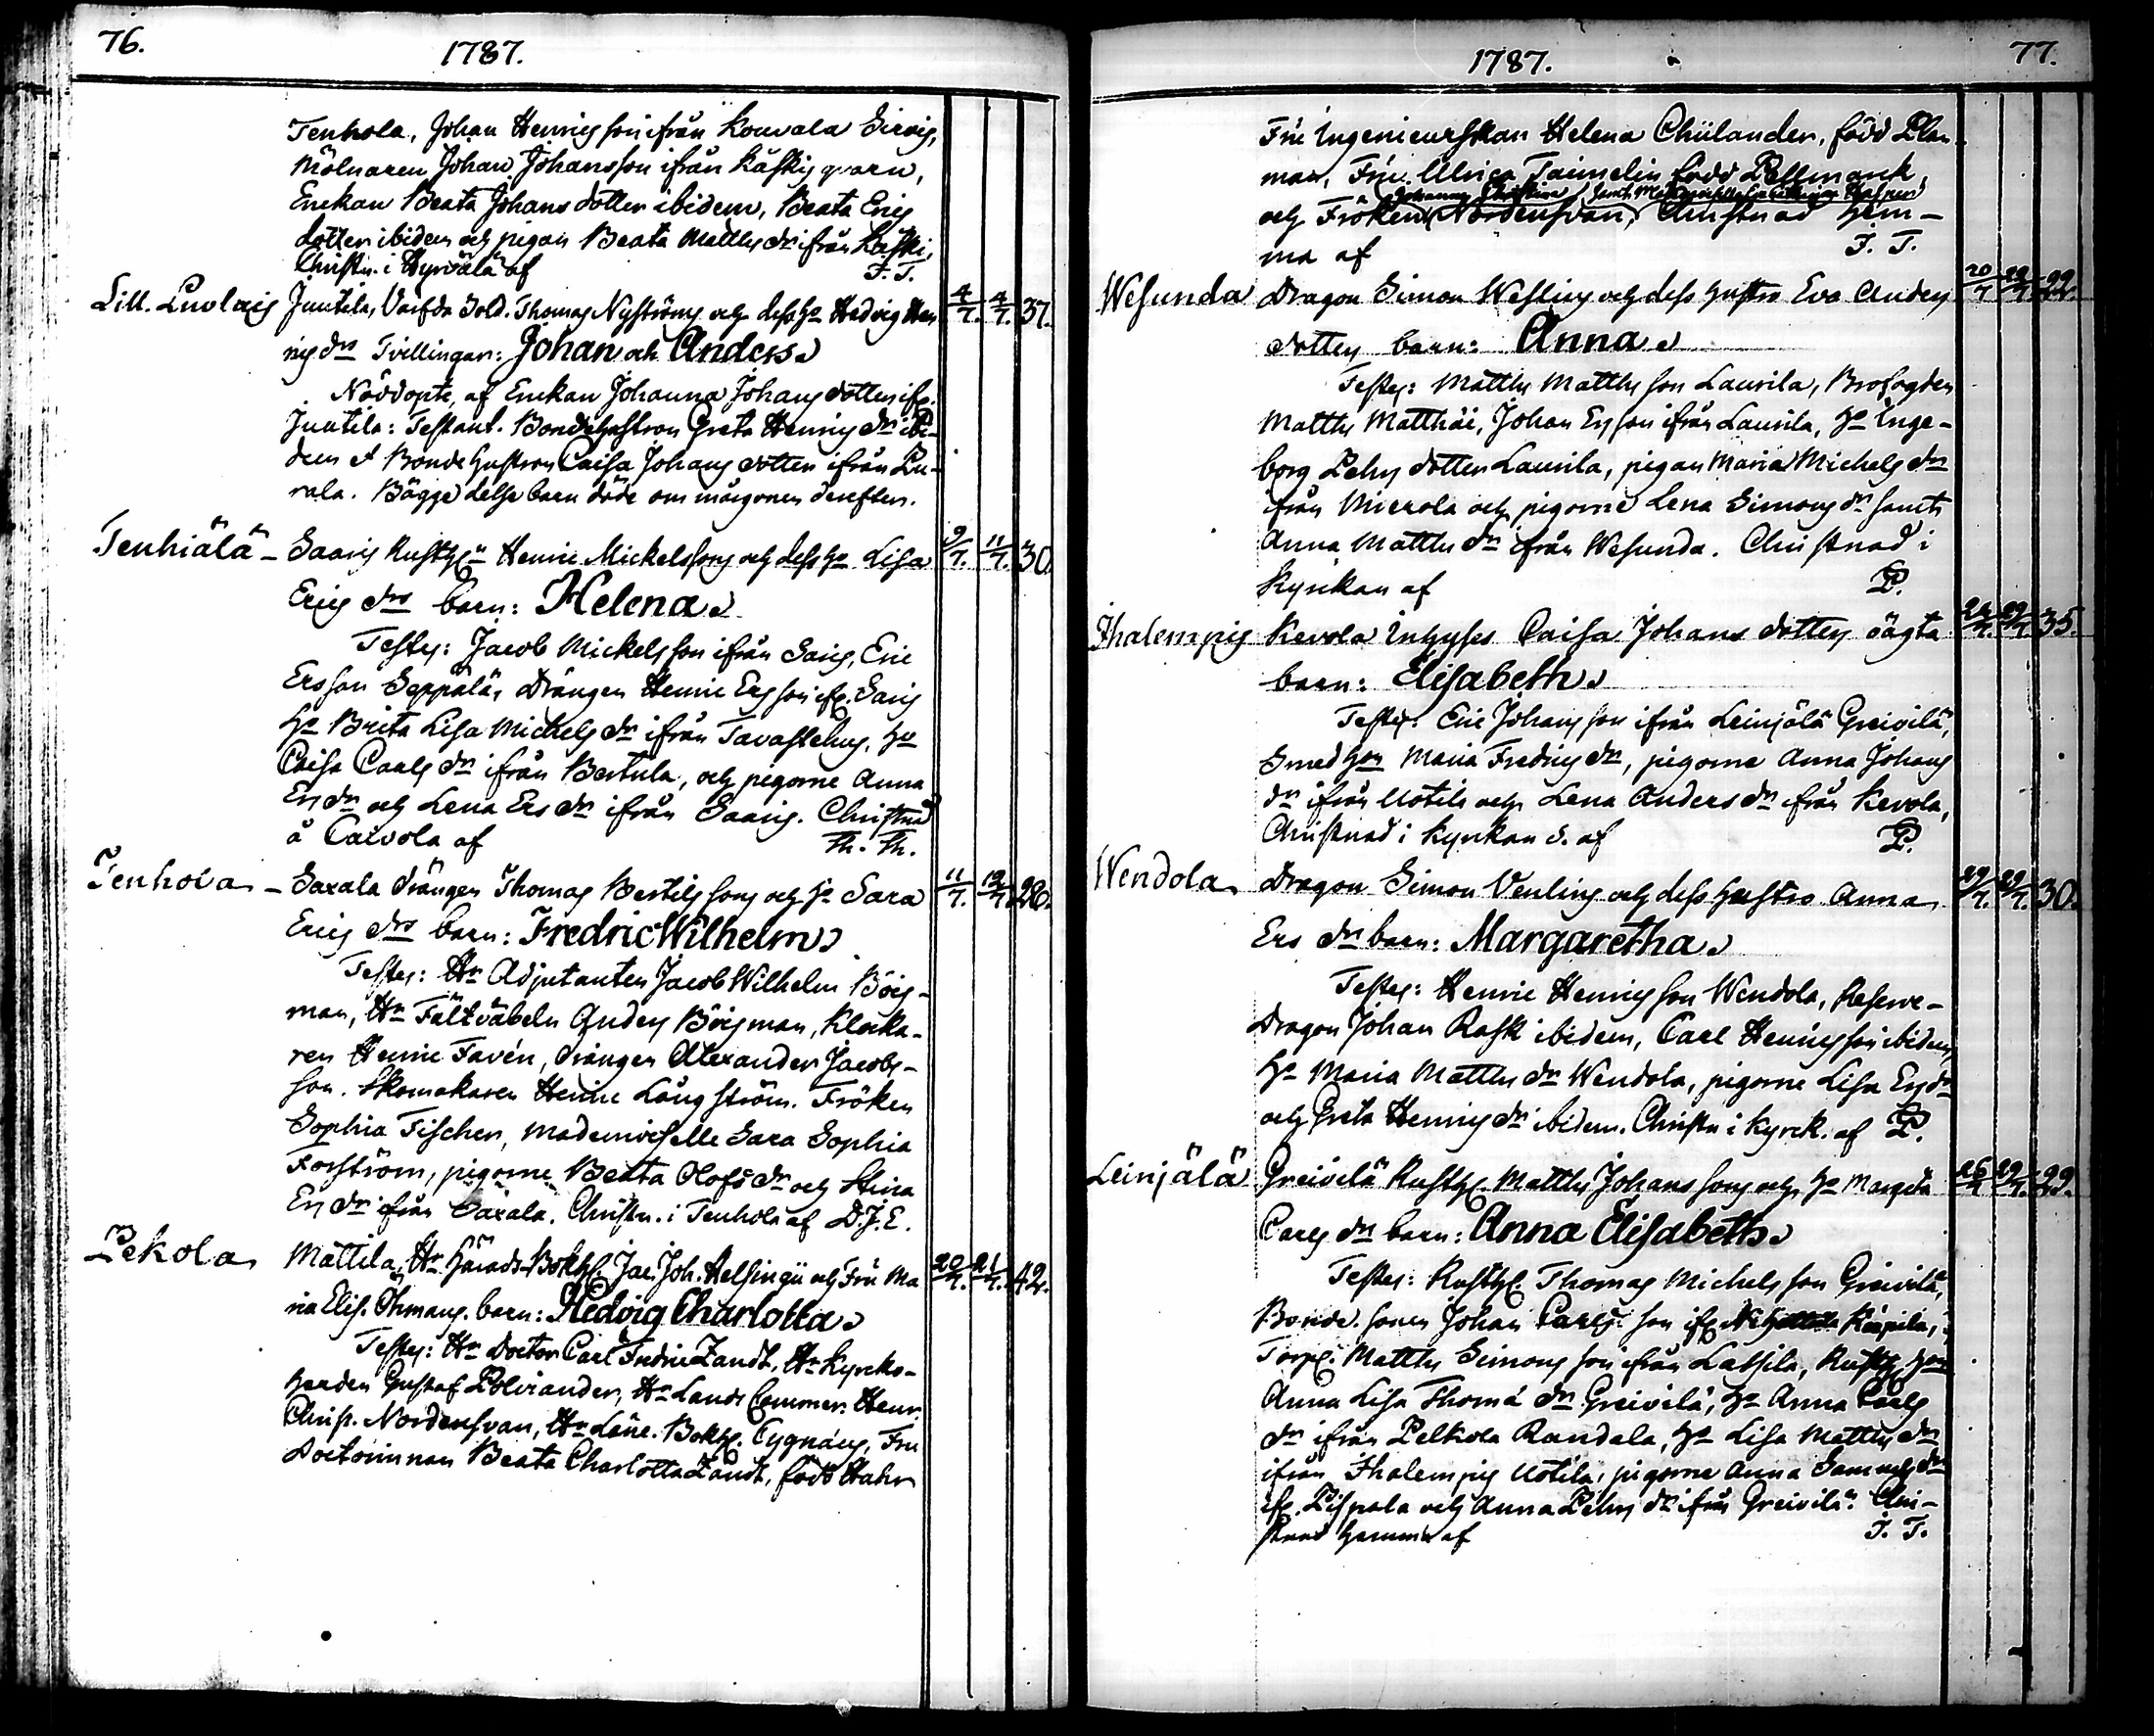 76.
1787.
Tenhola, Johan Henrics son ifrån Kouvala Sirvis,
Mölnaren Johan Johansson ifrån Käskis qvarn,
Enckan Beata Johans dotter ibidem, Beata Erics
dotter ibidem och pigan Beata Matths dr ifrån Käski,
Christn. i Hyrvälä af F. T.
Lill. Luolais Juutila, Varfda Sold. Thomas Nyströms och dess ho Hedvig Hen 4/7. 4/7. 37.
rics drs Tvillingar: Johan och Anders.
Nöddopte, af Enckan Johanna Johans dotter ifr.
Juutila: Testant. Bondehustron Greta Henrics dr ibi-
dem et Bonde hustron Caisa Johans dotter ifrån Pu-
rala. Bägge desse barn döde om morgonen derefter.
Tenhiälä - Saaris Rusth:n Henric Mickelssons och dess ho Lisa 9/7. 11/7. 30.
Erics drs barn: Helena.
Testes: Jacob Mickelsson ifrån Saris, Eric
Ersson Seppälä, Drängen Henric Ersson ifr. Saris
Ho Brita Lisa Michels dr ifrån Tavastehus, ho
Caisa Carls dr ifrån Bertula, och pigorne Anna
Ers dr och Lena Ers dr ifrån Saaris. Christnad
å Calvola af Th. Th.
Tenhola - Saxala drängen Thomas Bertils sons och ho Sara 11/7. 12/7. 26.
Erics drs barn: Fredric Wilhelm.
Testes: Hr Adjutanten Jacob Wilhelm Börg-
man, Hr Fältväbeln Anders Börgman, Klocka-
ren Henric Favén, drängen Alexander Jacobs-
son. Skomakaren Henric Långström. Fröken
Sophia Fischer, Mademoiselle Sara Sophia
Forström, pigorne Beata Olofs dr och Stina
Ers dr ifrån Saxala. Christn. i Tenhola af D.J.E.
Pekola Mattila, Hr Härads-Bokh. Jac. Joh. Helsingii och Fru Ma 20/7. 21/7. 42.
ria Elis. Öhmans. barn: Hedvig Charlotta.
Testes: Hr Doctor Carl Fredric Zandt, Hr Kyrcko-
herden Gustaf Polviander, Hr Lands Cammer. Henr.
Christ. Nordensvan, Hr Läne. Bokh. Cygnæus, Fru
Doctorinnan Beata Charlotta Zandt, född Hahn
1787.
77.
Fru Ingenieurskan Helena Chiilander, född Plan
man, Fru. Ulrica Taimelin född Pellmanck,
Johanna Christina samt
och Fröken Nordensvan, Christnad hem-
ma af F. T.
Wesunda Dragon Simon Weslings och dess hustro Eva Anders 20/7 22/7 22.
dotters barn: Anna.
Testes: Matths Matths son Laurila, Brofogden
Matths Matthäi, Johan Ersson ifrån Laurila, Ho Inge-
borg Pehrs dotter Laurila, pigan Maria Michels dr
från Mierola och pigorne Lena Simons dr samt
Anna Matths dr ifrån Wesunda. Christnad i
Kyrckan af P.
Ihalempis Kevola Inhyses Caisa Johans dotters oägta 24/7. 29/7. 35.
barn: Elisabeth.
Testes: Eric Johans son ifrån Leinjälä Greivilä,
Smed hon Maria Fredrics dr, pigorne Anna Johans
dr ifrån Uotila och Lena Anders dr ifrån Kevola,
Christnad i Kyrckan s. af P.
Wendola Dragon Simon Venlings och dess hustro Anna 29/7. 29/7. 30.
Ers drs barn: Margaretha.
Testes: Henric Henrics son Wendola, Reserve-
Dragon Johan Rask ibidem, Carl Henrics son ibidem,
Ho Maria Matths dr Wendola, pigorne Lisa Ers dr
och Greta Henrics dr ibidem. Christn i Kyrck. af P.
Leinjälä Greivilä Rusth. Matths Johans sons och ho Margeta 26/7 29/7. 29.
Carls drs barn: Anna Elisabeth.
Testes: Rusth. Thomas Michels son Greivilä,
Bonde sonen Johan Carls son ifr. Käpilä,
Torp. Matths Simons son ifrån Lassila, Rusth. hon
Anna Lisa Thomæ dr Greivilä, ho Anna Carls
dr ifrån Pelkola Randala, ho Lisa Matths dr
ifrån Ihalempis Uotila, pigorne Anna Samuels dr
ifr. Pispala och Anna Pehrs dr ifrån Greivilä. Chri-
stnad hemma af F. T.